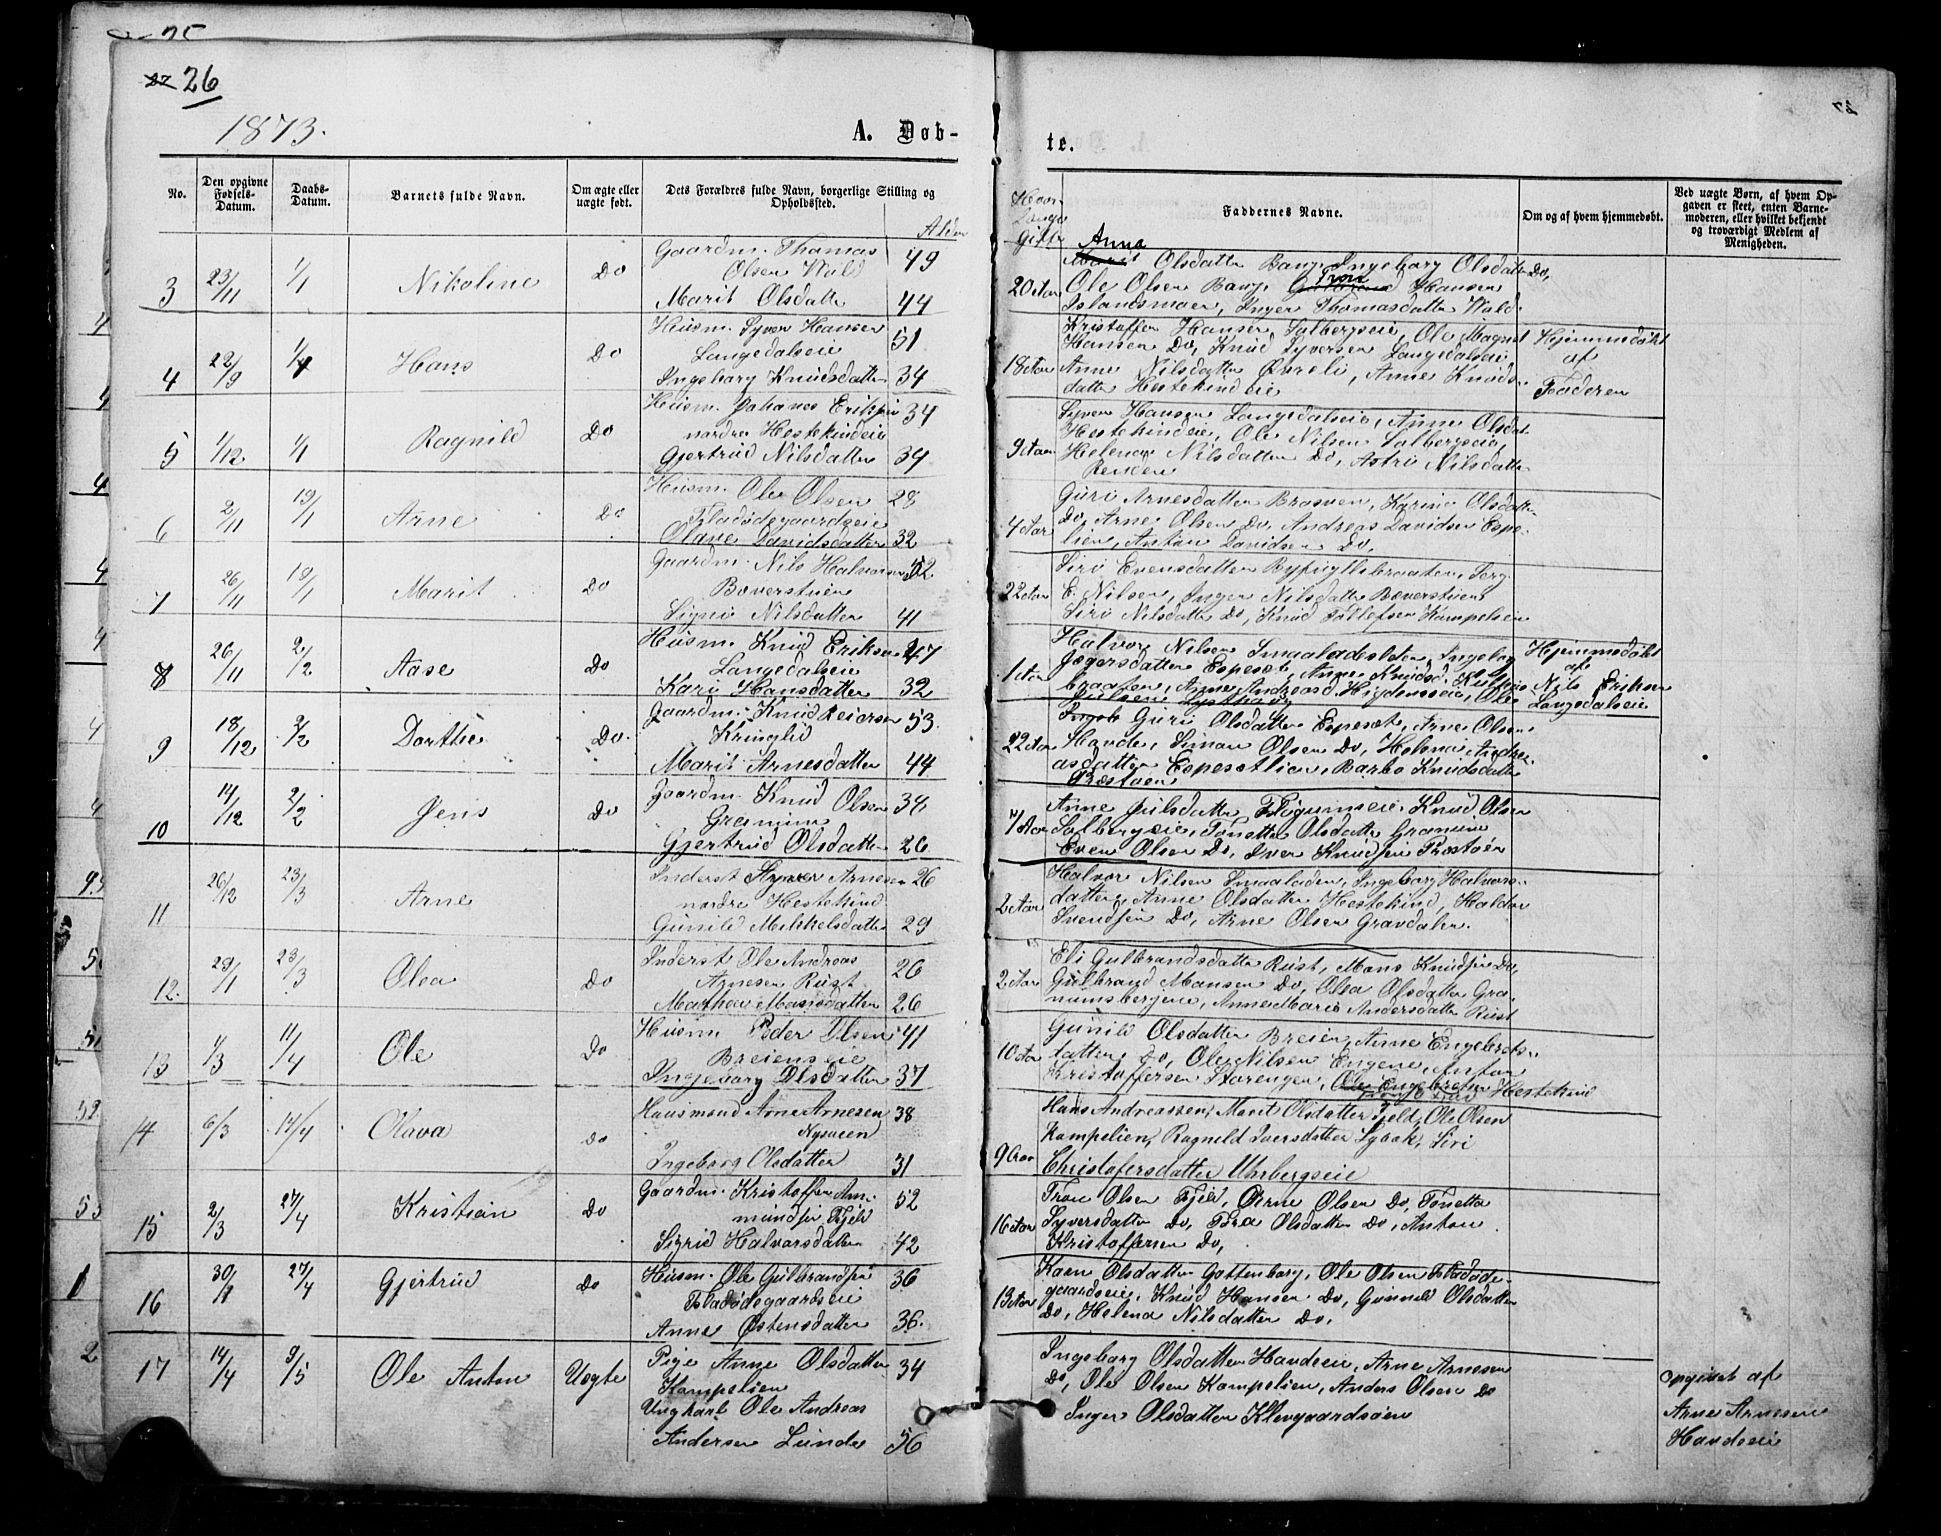 26
1873.
A. Døb-
te.
No.
Den opgivne Fødsels-Datum.
Daabs-Datum.
Barnets fulde Navn.
Om ægte eller uægte født.
Dets Forældres fulde Navn, borgerlige Stilling og Opholdssted.
Alder
Hvor Længe Gifte
Faddernes Navne.
Om og af hvem hjemmedøbt.
Ved uægte Børn, af hvem Opgaven er skeet, enten Barnemoderen, eller hvilket bekjendt og troværdigt Medlem af Menigheden.
3 23/11 1/1 Nikoline Do Gaardm. Thomas 49
Olsen Wald
Marit Olsdatter 44
Anna
Olsdatter Bang, Ingeborg Olsdatter Do,
20 Aar Ole Olsen Bang, Tron Hansen
Islandsmoen, Inger Thomasdatter Wald.
4 22/9 1/1 Hans Do Husm. Syver Hansen 51
Langedalseie
Ingeborg Knudsdatter 34
Kristoffer Hansen Solbergseie, Ole Magnus Hjemmedøbt
Hansen Do, Knud Syversen Langedalseie af
18 Aar Anne Nilsdatter Øvreli, Anne Knuds- Faderen
datter Hestekindeie
5 1/12 1/1 Ragnild Do Husm. Johanes Eriksen 34
nordre Hestekindeie
Gjertrud Nilsdatter 34
Syver Hansen Langedalseie, Anne Olsdat.
Hestekindeie, Ole Nilsen Solbergseie,
9 Aar Helene Nilsdatter Do, Astri Nilsdatter
6 2/11 19/1 Arne Do Husm. Ole Olsen 28
Fladødegaardseie
Olave Davidsdatter 32
Guri Arnesdatter Braaten, Karine Olsdatter
4 Aar Do, Arne Olsen Do, Andreas Davidsen Espe-
lien, Anton Davidsen Do,
7 26/11 19/1 Marit Do Gaardm. Nils Halvorsen 52
Baverstuen
Signe Nilsdatter 41
Siri Evensdatter
22 Aar E. Nilsen, Inger Nilsdatter Baverstuen
Siri Nilsdatter Do, Knud Tollefsen Kampelien
8 26/11 2/2 Aase Do Husm. Knud Eriksen 47
Langedalseie
Kari Hansdatter 32
Halvor Nilsen Smaaladesleten, Ingebor Hjemmedøbt
1 Aar Espeset, Anne Knudsd. af
braaten, Anne Andreasd. Nils Eriksen
Langedalseie
9 18/12 2/2 Dorthe Do Gaardm. Knud Reiersen 53.
Kringlid
Marit Arnesdatter 44
Guri Olsdatter Espeset, Arne Olsen
22 Aar Havde, Simon Olsen Do, Helene Andre-
asdatter Espesetlien, Barbo Knudsdatter
10 14/12 2/2 Jens Do Gaardm. Knud Olsen 34
Granum
Gjertrud Olsdatter 26
Anne Julsdatter Knud Olsen
7 Aar Solbergseie, Tonette Olsdatter Granum
Even Olsen Do, Iver Knudsen
11 26/12 23/3 Arne Inderst Syver Arnesen 26
nordre Hestekind
Gunild Mikkelsdatter 29
Halvor Nilsen Smaaladen, Ingeborg Halvors-
2 Aar datter, Anne Olsdatter Hestekind, Haldor
Svendsen Do, Arne Olsen Gravdalen.
12. 29/1 23/3 Olea Do Inderst Ole Andreas 26
Arnesen Rust
Mathea Mansdatter 26
Eli Gulbrandsdatter Rust, Mons Knudsen Do,
2 Aar Gulbrand Mansen Do, Olea Olsdatter Gra-
numsbergene, Anne Marie Andersdatter Rust
13 1/3 11/4 Ole Do Husm. Peder Olsen 41
Breienseie
Ingeborg Olsdatter 37
Gunild Olsdatter Breien, Anne Engebrets-
10 Aar datter Do, Ole Nilsen Engene, Anton
Kristoffersen Storengen, Hestekind
14 6/3 14/4 Olava do Huusmand Arne Arnesen 38
Nysveen
Ingeborg Olsdatter 31
Hans Andreassen, Marit Olsdatter Fjeld, Ole Olsen
Kampelien, Ragnild Iversdatter Sybak, Siri
9 Aar Christofersdatter Uhrbergseie
15 2/3 27/4 Kristian Do Gaardm. Kristoffer Am- 52
mundsen Fjeld
Sigrid Halvorsdatter 42
Tron Olsen Fjeld, Arne Olsen Do, Tonetta
16 Aar Syversdatter Do, Olsdatter Do, Anton
Kristoffersen Do,
16 30/1 27/4 Gjertrud Do Husm. Ole Gulbrandsen 36
Fladødegaardseie
Anne Østensdatter 36.
Karn Olsdatter Gottenborg, Ole Olsen Fladøde-
13 Aar gaardseie, Knud Hansen Do, Gunnild Olsdatter
Do, Helena Nilsdatter Do,
17 14/4 9/5 Ole Anton Uegte Pige Anne Olsdatter 34
Kampelien
Ungkarl Ole Andreas
Andersen Lunde 56
Ingeborg Olsdatter Havdeeie, Arne Arnesen
Do, Ole Olsen Kampelien, Anders Olsen Do
Inger Olsdatter Klevgaardsøen
opgivet af
Arne Arnesen
Havdeeie